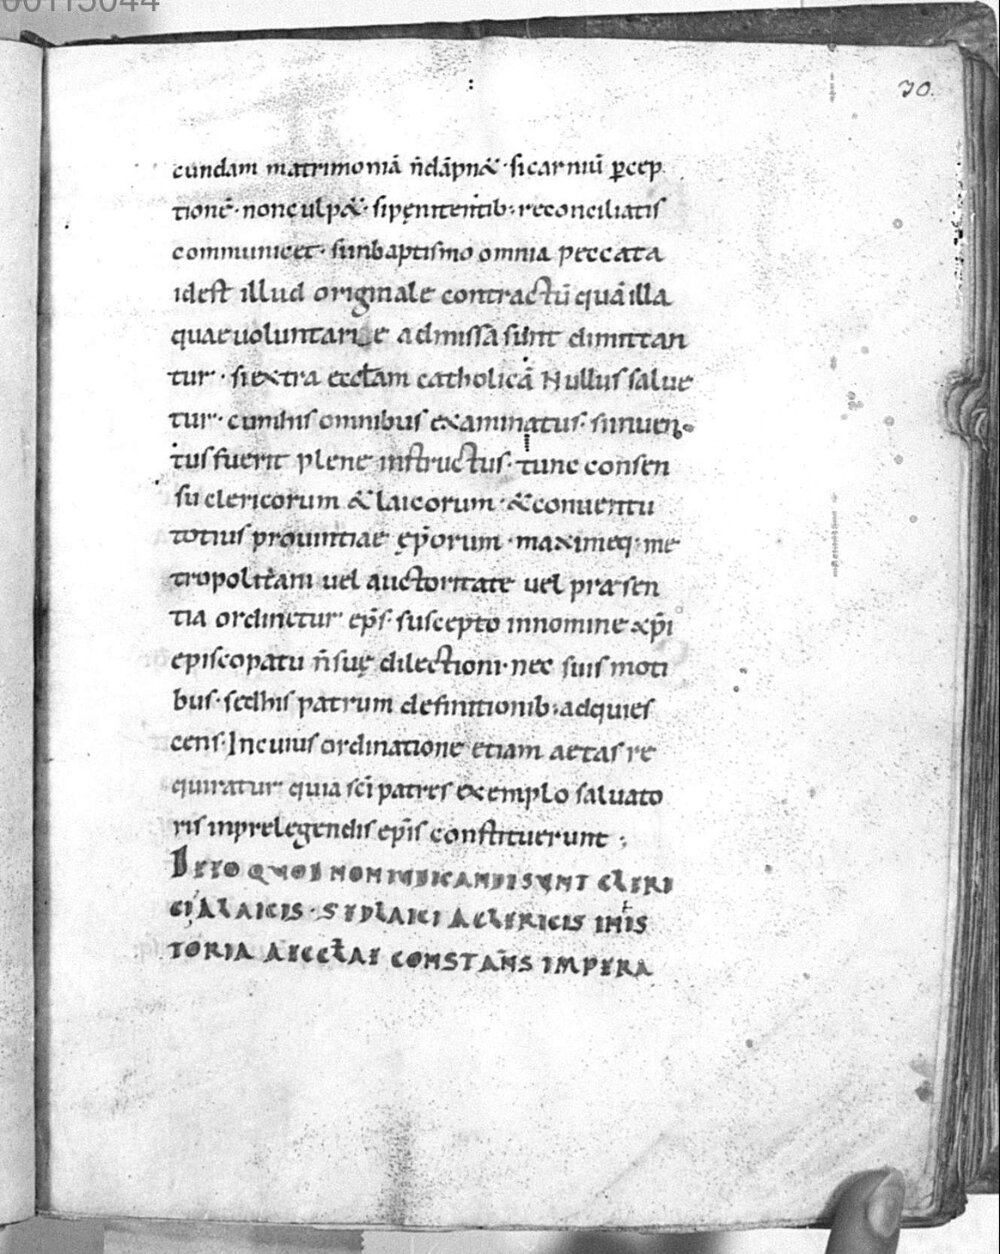 00115044
30.
cundam matrimoniā n̄dāpn& · sicarniū p̲cep
tionē · nonculp& · sipęnitentib; reconciliatis
communicet · siinbaptismo omnia peccata
idest illud originale contractū quā illa
quae voluntariae admissa sunt dimittan
tur · siextra eccl̄am catholicā Nullus salue
tur · cumhis omnibus examinatus · siinuen
tus fuerit plene instructus · tunc consen
su clericorum & laicorum · & conuentu
totius prouintiae ep̄orum · maximeq; me
tropolitani uel auctoritate uel praesen
tia ordinetur ep̄s · suscepto innomine xp̄i
episcopatu n̄ suę dilectioni · nec suis moti
bus · sedhis patrum definitionib; adquies
cens · Incuius ordinatione etiam aetas re
quiratur quia sc̄i patres exemplo saluato
ris inprelegendis ep̄is constituerunt ;
ITEO QUOD NON IUDICANDI SUNT CLERI
CI A LAICIS · SED LAICI A CLERICIS IN HIS
TORIA AECCL̄AE CONSTAN̄S IMPERA